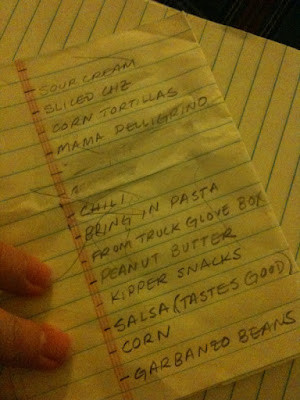 - SOUR CREAM
- SLICED CHZ
- CORN TORTILLAS
- MAMA PELLIGRINO
-
-
- CHILI
- BRING IN PASTA
- FROM TRUCK GLOVE BOX
- PEANUT BUTTER
- KIPPER SNACKS
- SALSA (TASTES GOOD)
- CORN
- GARBANZO BEANS